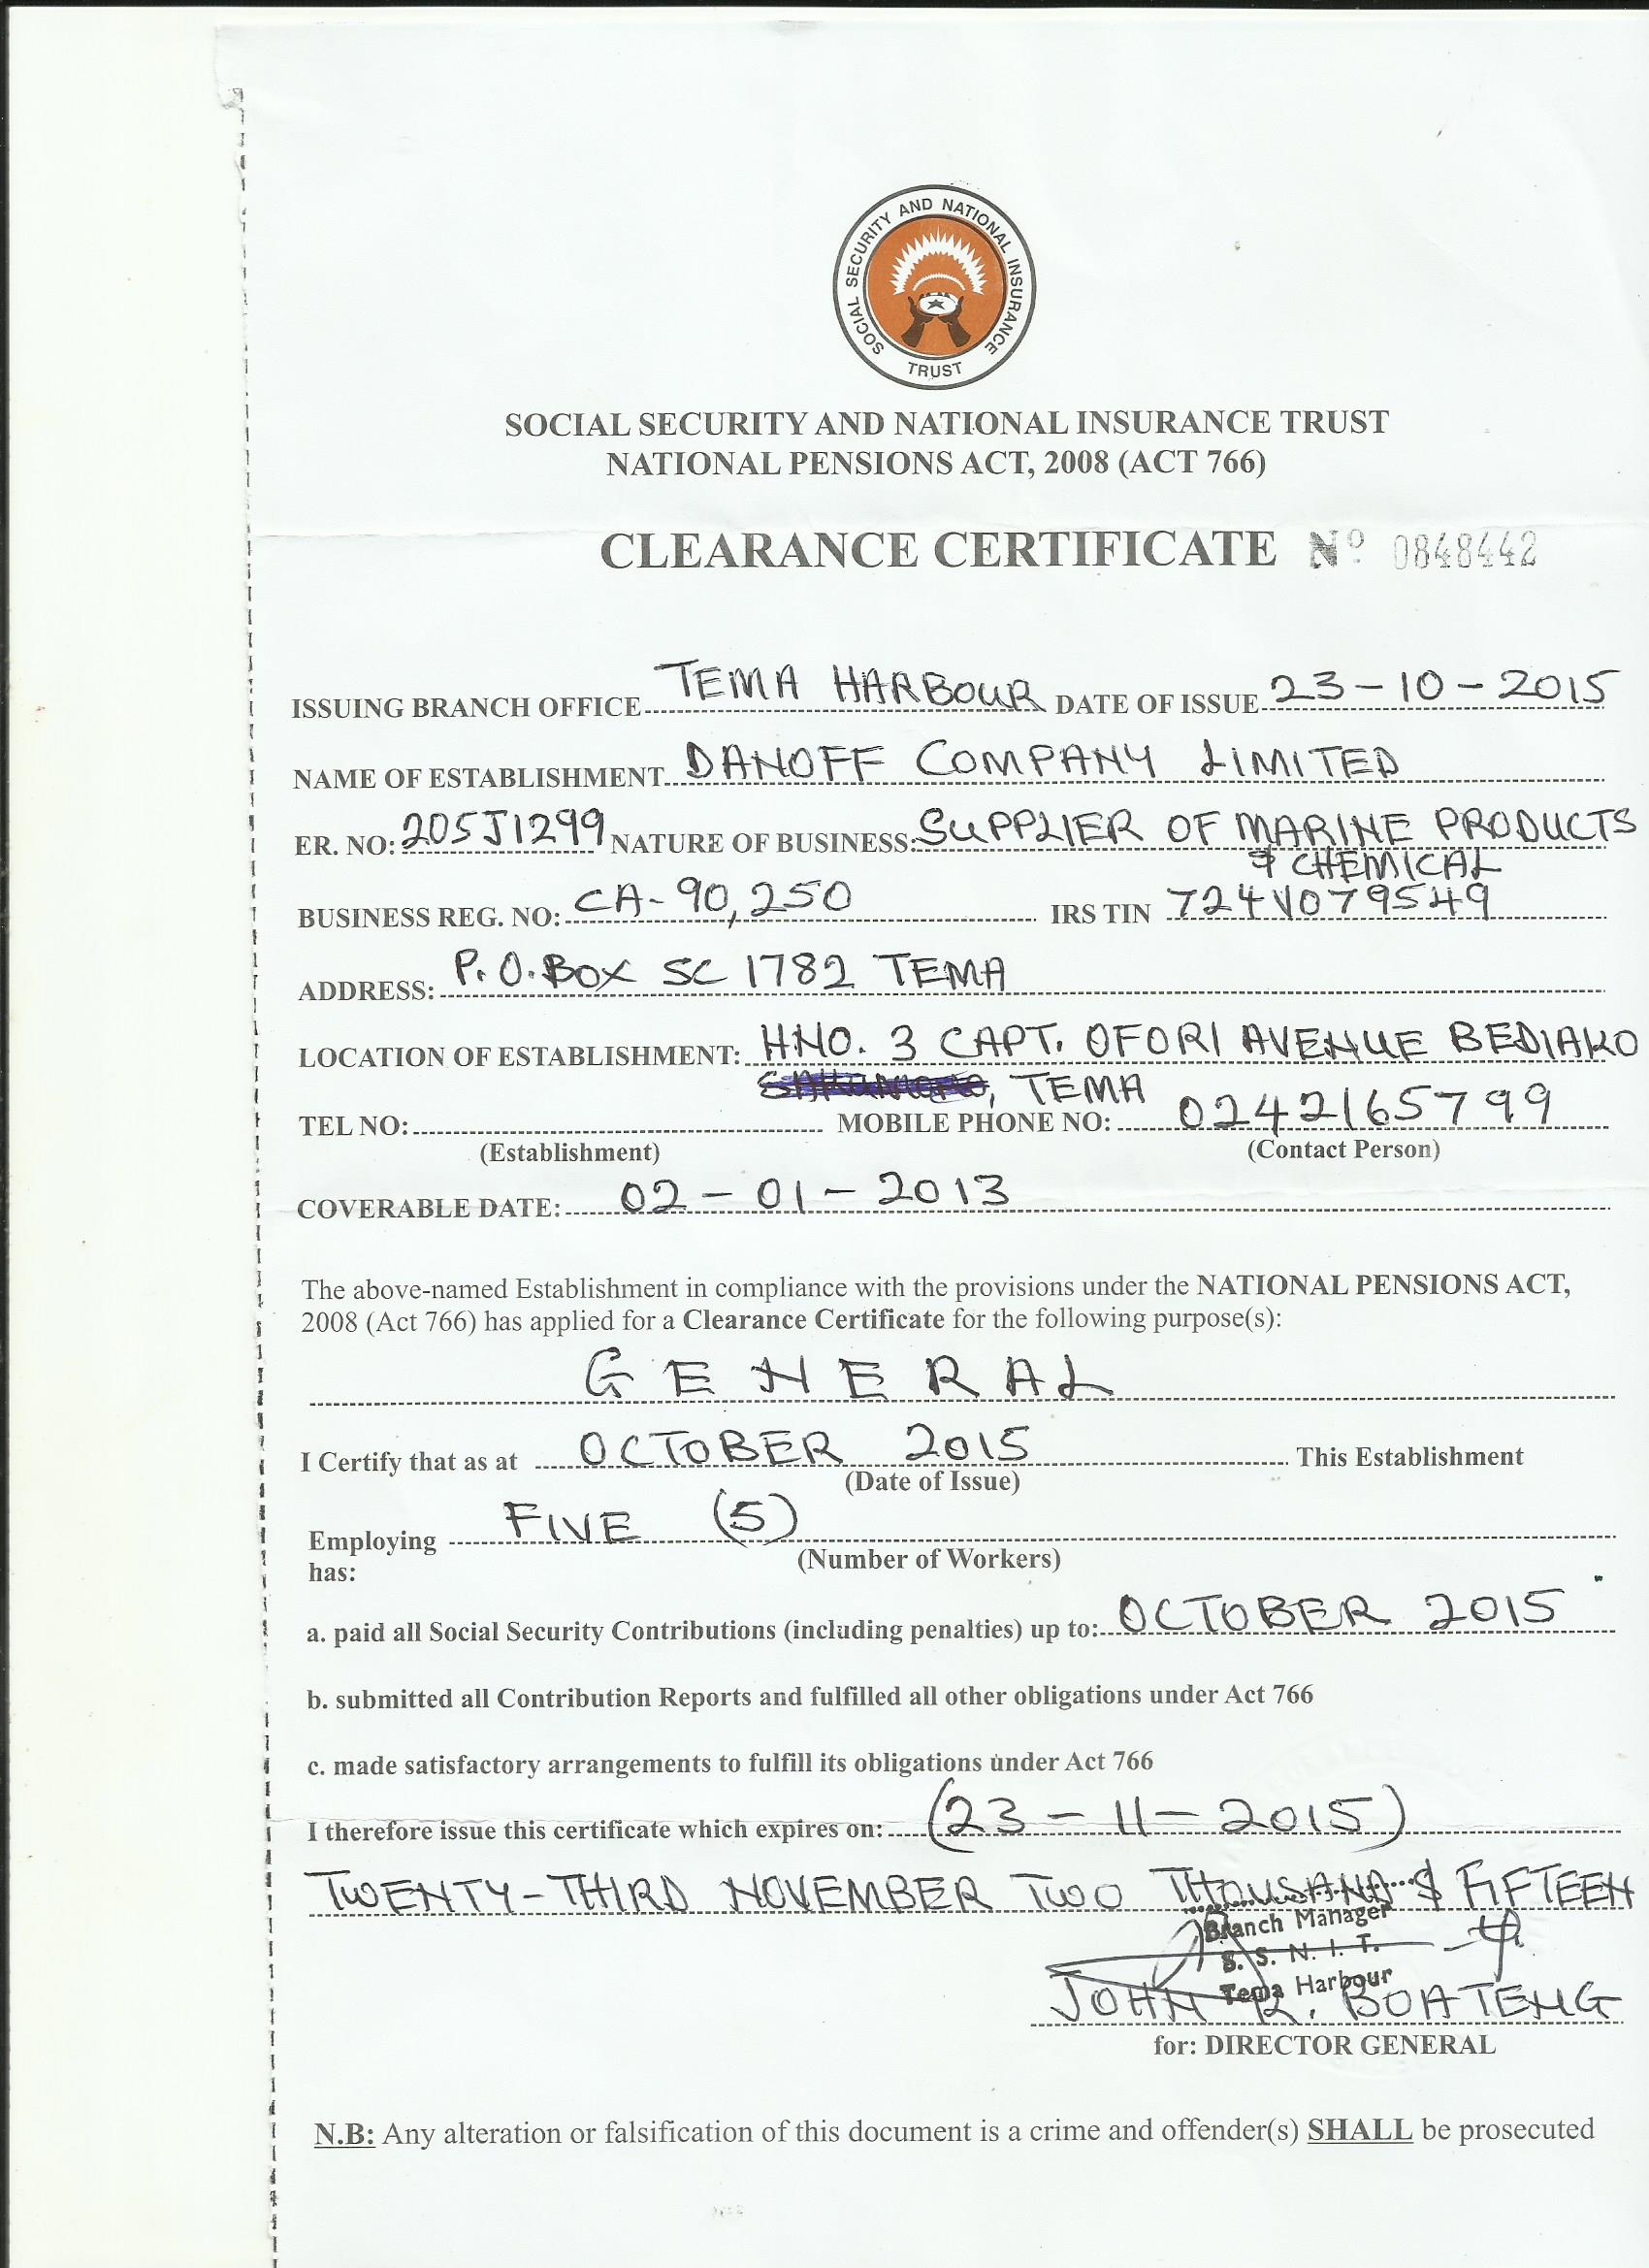 SOCIAL SECURITY AND NATIONAL INSURANCE
TRUST
SOCIAL SECURITY AND NATIONAL INSURANCE TRUST
NATIONAL PENSIONS ACT, 2008 (ACT 766)
CLEARANCE CERTIFICATE Nº 0848442
ISSUING BRANCH OFFICE TEMA HARBOUR DATE OF ISSUE 23-10-2015
NAME OF ESTABLISHMENT DANOFF COMPANY LIMITED
ER. NO: 205J1299 NATURE OF BUSINESS: SUPPLIER OF MARINE PRODUCTS
& CHEMICAL
BUSINESS REG. NO: CA-90,250 IRS TIN 724V079549
ADDRESS: P.O. BOX SC 1782 TEMA
LOCATION OF ESTABLISHMENT: HNO. 3 CAPT. OFORI AVENUE BEDIAKO
, TEMA
TEL NO: MOBILE PHONE NO: 0242165799
(Establishment) (Contact Person)
COVERABLE DATE: 02-01-2013
The above-named Establishment in compliance with the provisions under the NATIONAL PENSIONS ACT,
2008 (Act 766) has applied for a Clearance Certificate for the following purpose(s):
GENERAL
I Certify that as at OCTOBER 2015 This Establishment
(Date of Issue)
Employing FIVE (5)
has: (Number of Workers)
a. paid all Social Security Contributions (including penalties) up to: OCTOBER 2015
b. submitted all Contribution Reports and fulfilled all other obligations under Act 766
c. made satisfactory arrangements to fulfill its obligations under Act 766
I therefore issue this certificate which expires on: (23-11-2015)
TWENTY-THIRD NOVEMBER TWO THOUSAND & FIFTEEN
Branch Manager
S. S. N. I. T.
Tema Harbour
JOHN R. BOATENG
for: DIRECTOR GENERAL
N.B: Any alteration or falsification of this document is a crime and offender(s) SHALL be prosecuted